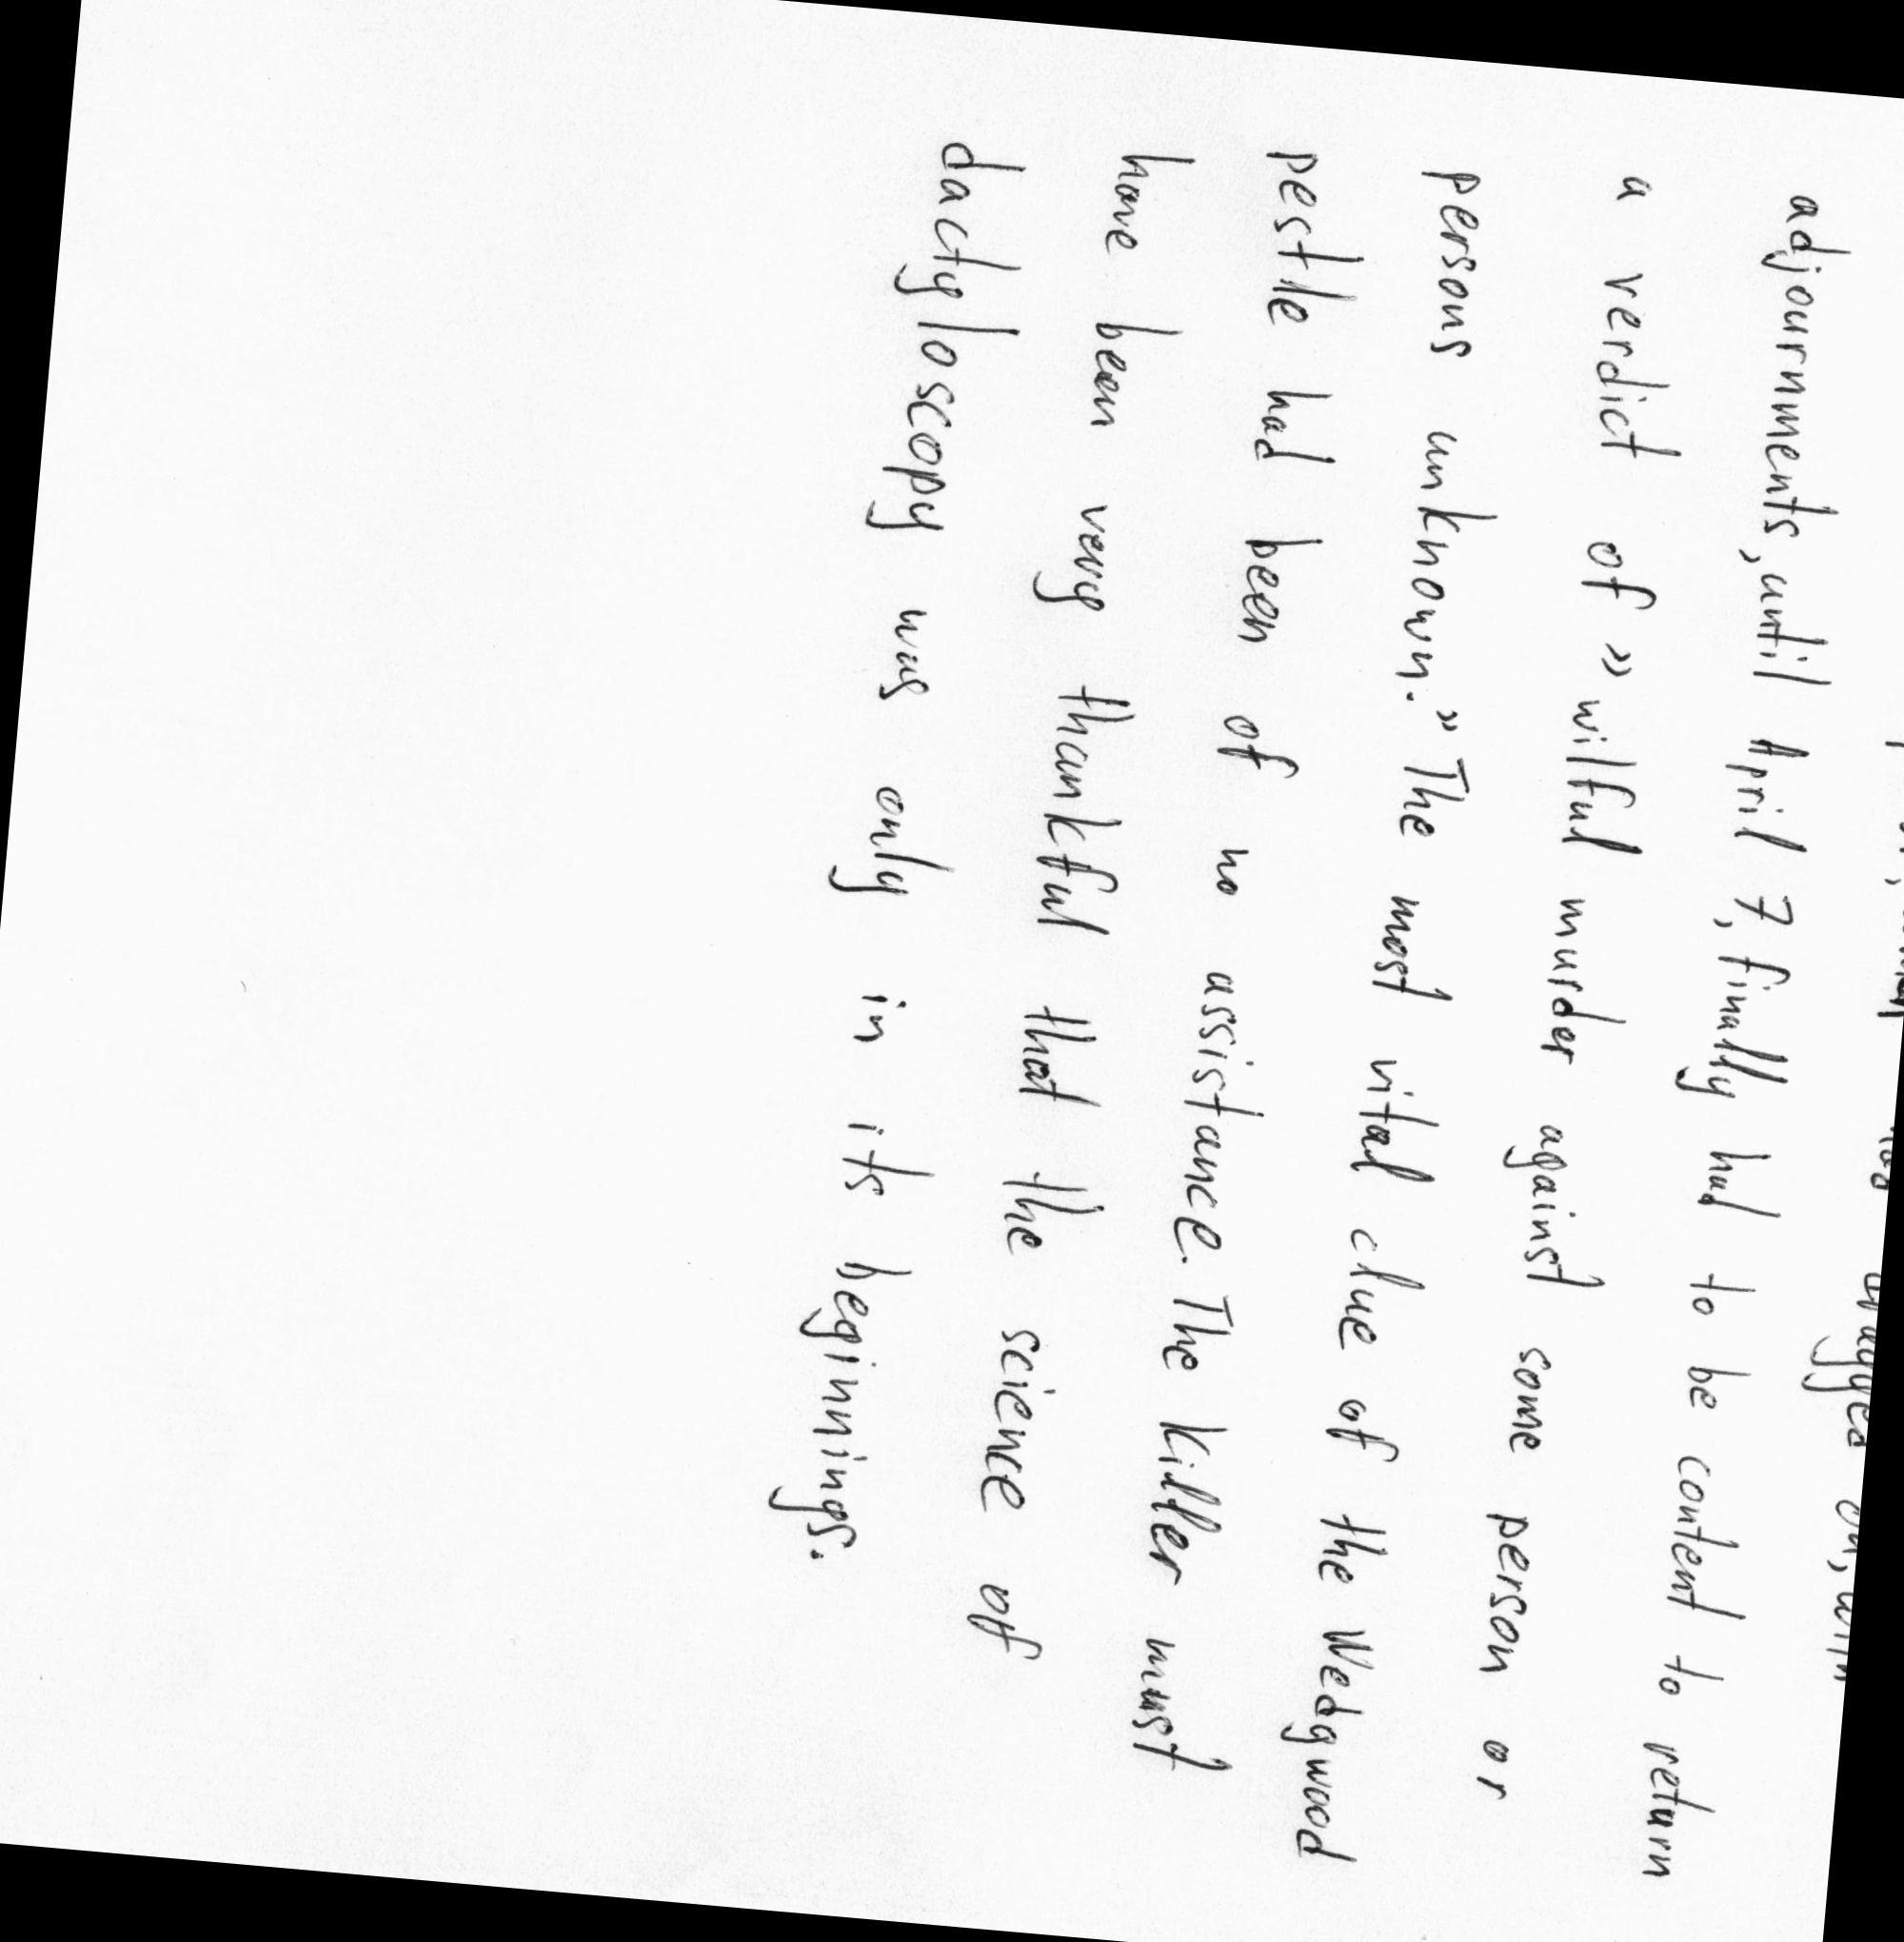 dragged on, with
adjournments, until April 7, finally had to be content to return
a verdict of "wilful murder against some person or
persons unknown." The most vital clue of the Wedgwood
pestle had been of no assistance. The killer must
have been very thankful that the science of
dactyloscopy was only in its beginnings.